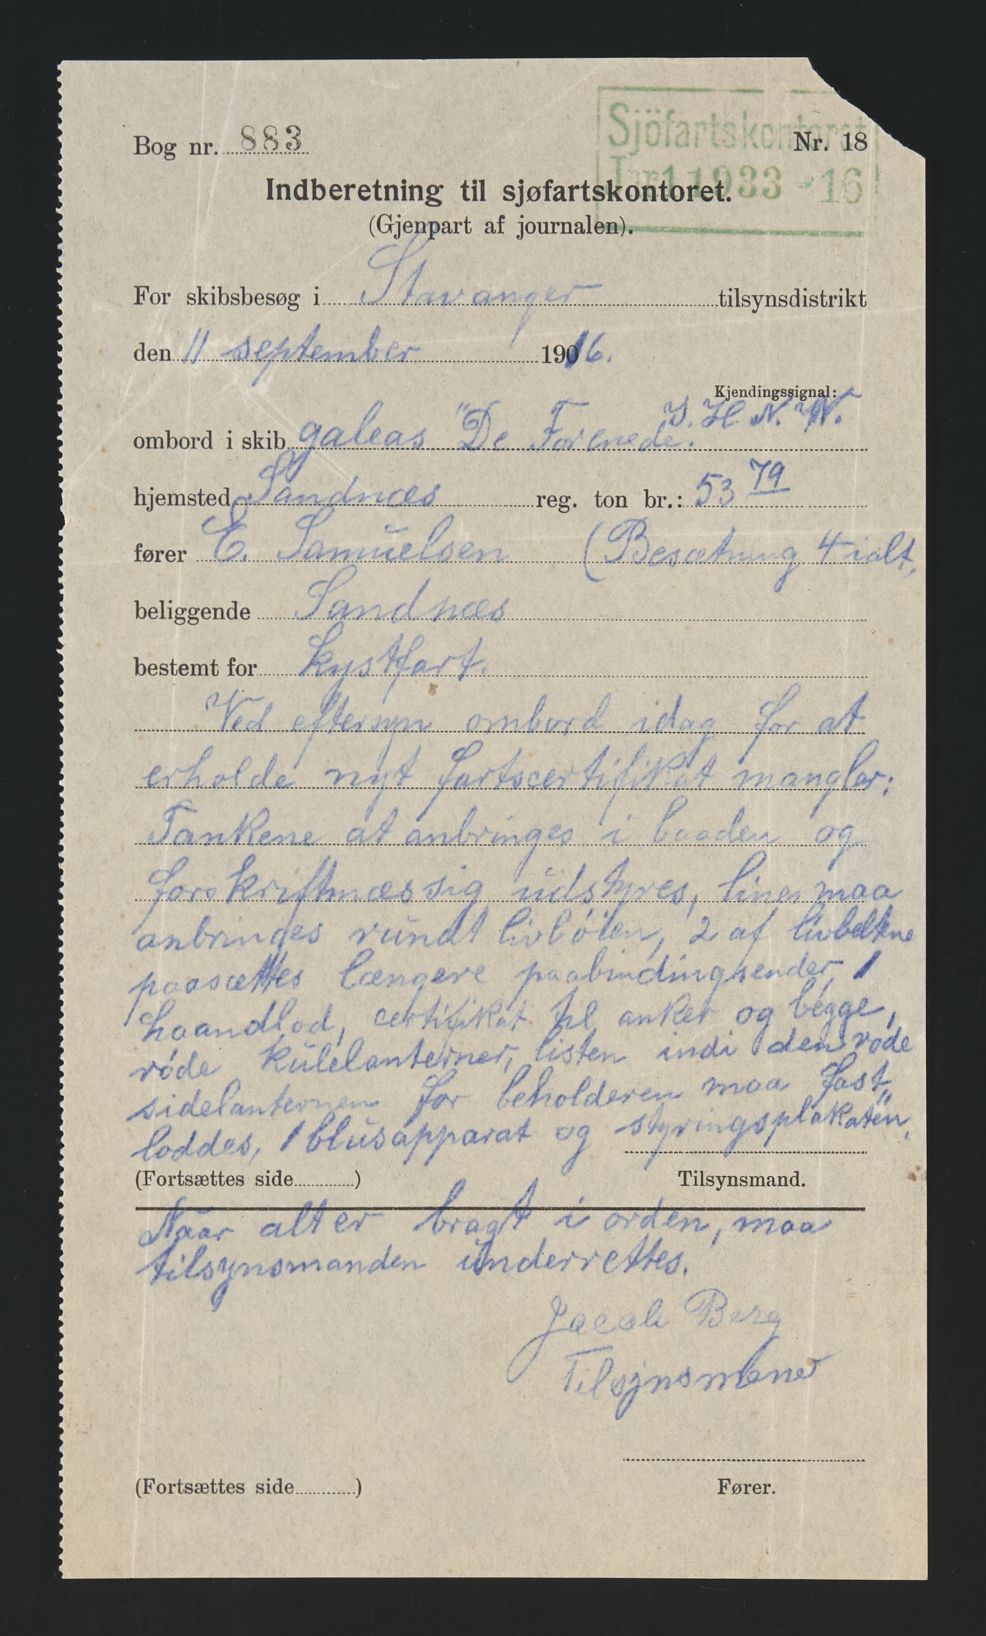 Sjöfartskontoret
Bog nr. 883
Nr. 18
Jnr 11933 - 16
Indberetning til sjøfartskontoret.
(Gjenpart af journalen).
For skibsbesøg i Stavanger tilsynsdistrikt
den 11 september 19016.
Kjendingssignal:
J. H. N. W.
ombord i skib galeas "De Forenede".
hjemsted Sandnæs reg. ton br.: 53 79
fører E. Samuelsen (Besætning 4 ialt,
beliggende Sandnæs
bestemt for kystfart.
Ved eftersyn ombord idag for at
erholde nyt fartscertifikat mangler:
Tankene at anbringes i baaden og
forskriftmæssig udstyres, linen maa
anbringes rundt livbøien, 2 af livbeltene
paasættes længere paabindingsender, 1
haandlod, certifikat til anker og begge,
røde kulelanterner, listen indi den røde
sidelanternen for beholderen maa fast,
loddes, 1 blusapparat og styringsplakaten.
(Fortsættes side ) Tilsynsmand.
Naar alt er bragt i orden, maa
tilsynsmanden underrettes.
Jacob Berg
Tilsynsmand
(Fortsættes side ) Fører.